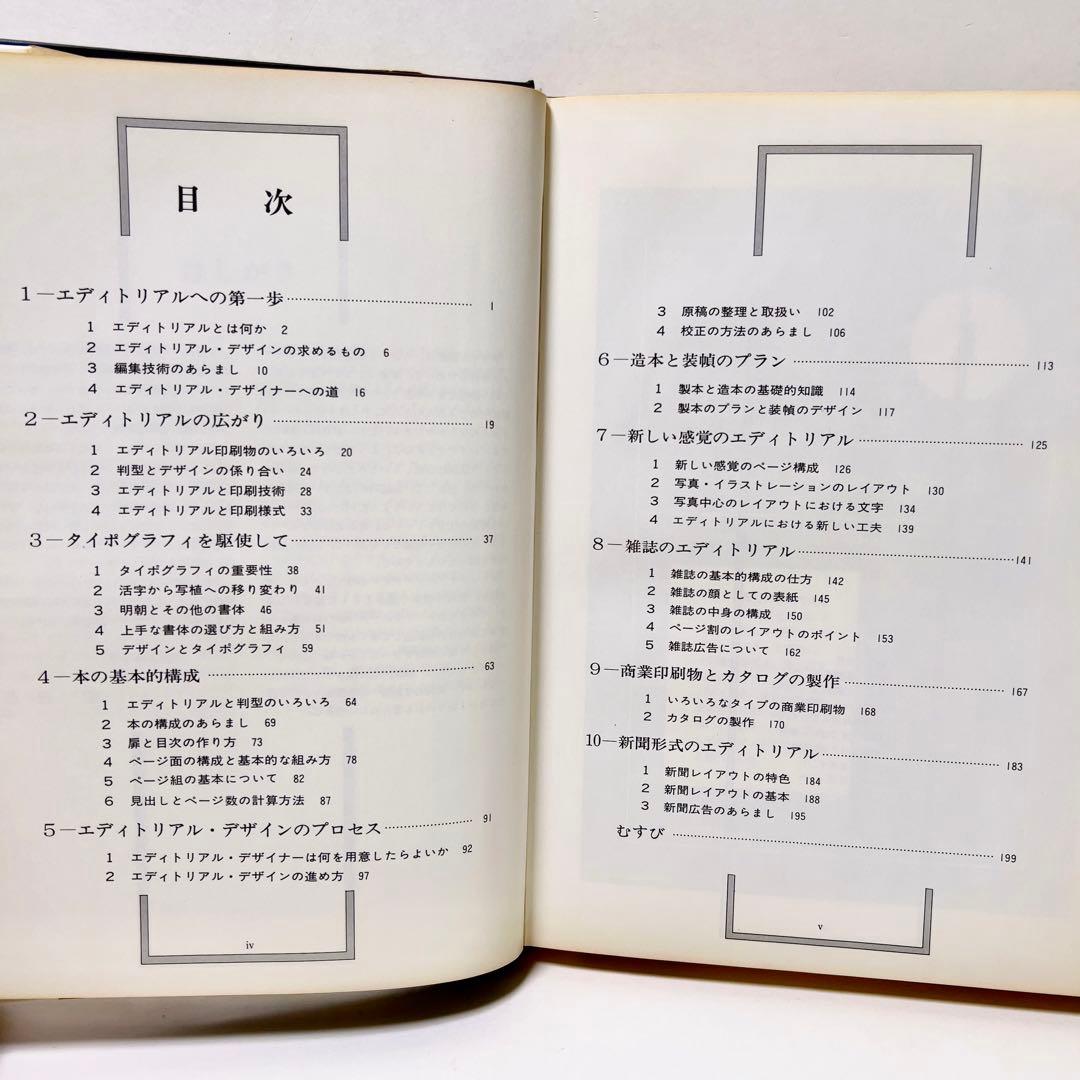 目 次
1―エディトリアルへの第一歩…………………………1
1 エディトリアルとは何か 2
2 エディトリアル・デザインの求めるもの 6
3 編集技術のあらまし 10
4 エディトリアル・デザイナーへの道 16
2―エディトリアルの広がり…………………………19
1 エディトリアル印刷物のいろいろ 20
2 判型とデザインの係り合い 24
3 エディトリアルと印刷技術 28
4 エディトリアルと印刷様式 33
3―タイポグラフィを駆使して…………………………37
1 タイポグラフィの重要性 38
2 活字から写植への移り変わり 41
3 明朝とその他の書体 46
4 上手な書体の選び方と組み方 51
5 デザインとタイポグラフィ 59
4―本の基本的構成…………………………63
1 エディトリアルと判型のいろいろ 64
2 本の構成のあらまし 69
3 扉と目次の作り方 73
4 ページ面の構成と基本的な組み方 78
5 ページ組の基本について 82
6 見出しとページ数の計算方法 87
5―エディトリアル・デザインのプロセス……………91
1 エディトリアル・デザイナーは何を用意したらよいか 92
2 エディトリアル・デザインの進め方 97
iv
3 原稿の整理と取扱い 102
4 校正の方法のあらまし 106
6―造本と装幀のプラン…………………………113
1 製本と造本の基礎的知識 114
2 製本のプランと装幀のデザイン 117
7―新しい感覚のエディトリアル…………………………125
1 新しい感覚のページ構成 126
2 写真・イラストレーションのレイアウト 130
3 写真中心のレイアウトにおける文字 134
4 エディトリアルにおける新しい工夫 139
8―雑誌のエディトリアル…………………………141
1 雑誌の基本的構成の仕方 142
2 雑誌の顔としての表紙 145
3 雑誌の中身の構成 150
4 ページ割のレイアウトのポイント 153
5 雑誌広告について 162
9―商業印刷物とカタログの製作…………………………167
1 いろいろなタイプの商業印刷物 168
2 カタログの製作 170
10―新聞形式のエディトリアル…………………………183
1 新聞レイアウトの特色 184
2 新聞レイアウトの基本 188
3 新聞広告のあらまし 195
むすび…………………………199
v